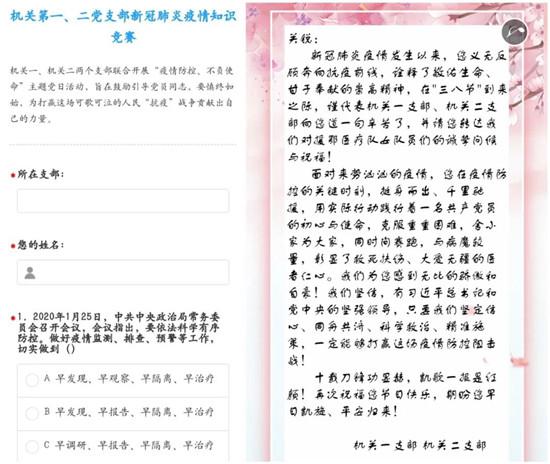 机关第一、二党支部新冠肺炎疫情知识
竞赛
机关一、机关二两个支部联合开展“疫情防控，不负使
命”主题党日活动，旨在鼓励引导党员同志，要慎终如
始，为打赢这场可歌可泣的人民“抗疫”战争贡献出自
己的力量。
*所在支部：
*您的姓名：
*1．2020年1月25日，中共中央政治局常务委
员会召开会议，会议指出，要依法科学有序
防控。做好疫情监测、排查、预警等工作，
切实做到（）
A 早发现、早观察、早隔离、早治疗
B 早发现、早报告、早隔离、早治疗
C 早调研、早报告、早隔离、早治疗
关锐：
新冠肺炎疫情发生以来，您义无反
顾奔向抗疫前线，诠释了救佑生命、
甘于奉献的崇高精神，在"三八节"到来
之际，谨代表机关一支部、机关二支
部向您道一句辛苦了，并请您转达我
们对援鄂医疗队女队员们的诚挚问候
与祝福！
面对来势汹汹的疫情，您在疫情防
控的关键时刻，挺身而出、千里驰
援，用实际行动践行着一名共产党员
的初心与使命，克服重重困难，舍小
家为大家，同时间赛跑，与病魔较
量，彰显了救死扶伤、大爱无疆的医
者仁心。我们为您感到无比的骄傲和
自豪！我们坚信，有习近平总书记和
党中央的坚强领导，只要我们坚定信
心、同舟共济、科学救治、精准施
策，一定能够打赢这场疫情防控阻击
战！
十载刀锋功显赫，凯歌一报是红
颜！再次祝福您节日快乐，期盼您早
日凯旋、平安归来！
机关一支部 机关二支部